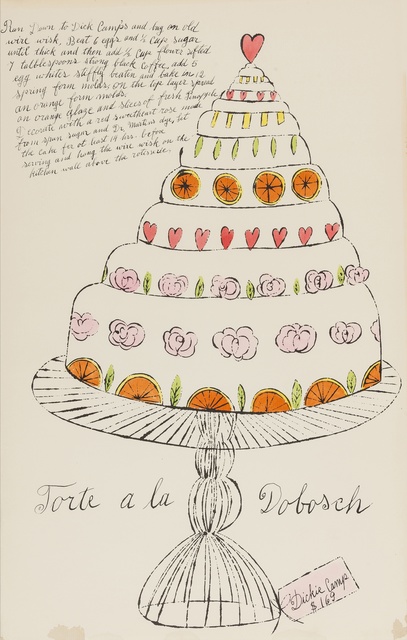 Run Down to Dick Camps and buy an old
wire wisk. Beat 6 eggs and ½ Cups sugar
until thick and then add ½ Cups flours sifted
7 talblespoons strong black Coffee, add 6
egg whites stiffly beaten and bake in 12
spring form molds, on the top layer spread
an orange form molds.
an orange glaze and slices of fresh Pineapple
Decorate with a red sweetheart rose made
from spun sugar and Dr. Martins dye, let
the cake for at least 14 hrs. before
serving and hang the wire wisk on the
kitchen wall above the rotissaie.
Torte a la Dobosch
Dickie Camp
$1.69